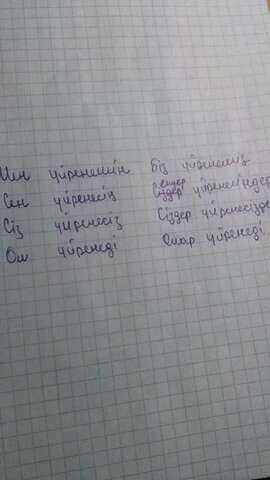 Мен үйренемін біз үйренеміз
Сен үйренесің сендер үйренесіңдер
Сіз үйренесіз Сіздер үйренесізде
Ол үйренеді Олар үйренеді